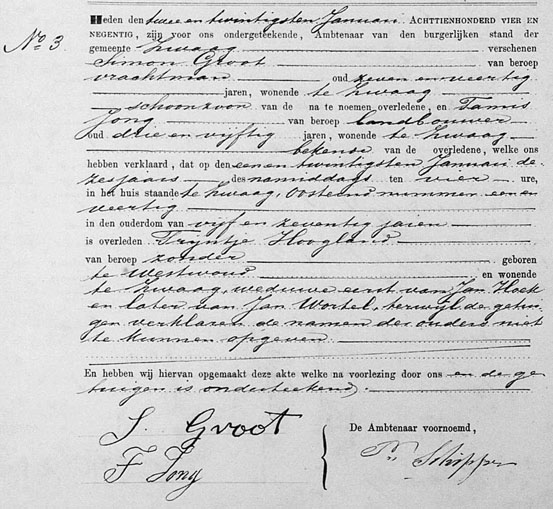 Heden den twee en twintigsten Januari ACHTTIENHONDERD VIER EN
No. 3.
NEGENTIG, zijn voor ons ondergeteekende, Ambtenaar van den burgerlijken stand der
gemeente Zwaag verschenen
Simon Groot van beroep
vrachtman oud zeven en veertig
jaren, wonende te Zwaag
schoonzoon van de na te noemen overledene, en Tamis
Jong van beroep landbouwer
oud drie en vijftig jaren, wonende te Zwaag
bekende van de overledene, welke ons
hebben verklaard, dat op den een en twintigsten Januari de-
zes jaars des namiddags ten vier ure,
in het huis staande te Zwaag, Oosteind nummer een en
veertig
in den ouderdom van vijf en zeventig jaren
is overleden Trijntje Hoogland
van beroep zonder geboren
te Westwoud en wonende
te Zwaag, weduwe eerst van Jan Hoek
en later van Jan Wortel, terwijl de getui-
gen verklaren de namen der ouders niet
te kunnen opgeven
En hebben wij hiervan opgemaakt deze akte welke na voorlezing door ons en de ge-
tuigen is onderteekend.
S. Groot
De Ambtenaar voornoemd,
Jong
Schipper